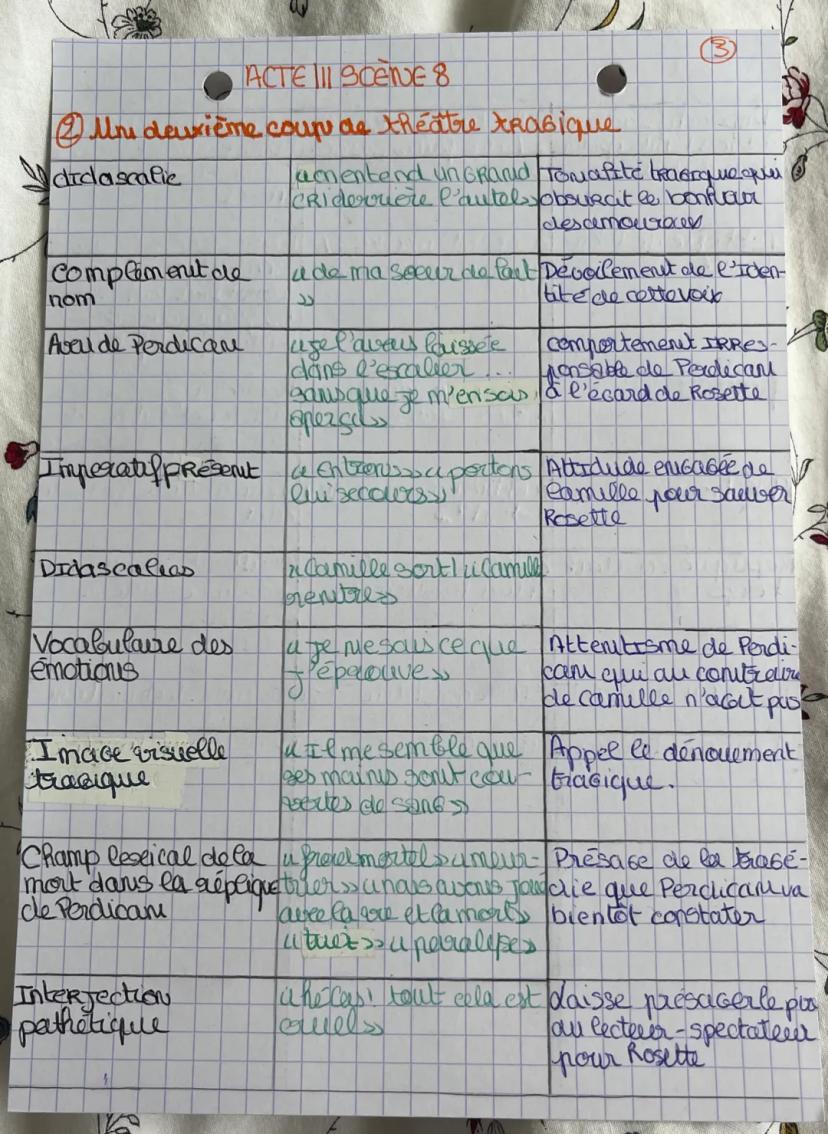 3
ACTE III SCÈNE 8
② Un deuxième coup de théâtre tragique
didascalie
« on entend un GRAND
CRI derrière l'autel »
Tonalité tragique qui
obsurcit le bonheur
des amoureux
Complément de
nom
« de ma soeur de lait
»
Dévoilement de l'iden-
tité de cette voix
Aveu de Perdican
« je l'avais laissée
dans l'escalier ...
sans que je m'en sois
aperçu »
comportement IRRES-
ponsable de Perdican
à l'écard de Rosette
Imperatif PRÉSENT
« Entrons » « portons
lui secours »
Attidude engagée de
Camille pour sauver
Rosette
Didascalies
« Camille sort » « Camille
rentre »
Vocabulaire des
émotions
« je ne sais ce que
j'éprouve »
Attentisme de Perdi-
can qui au contraire
de Camille n'agit pas
Image visuelle
tragique
« Il me semble que
mes mains sont cou-
vertes de sang »
Appel le dénouement
tragique.
Champ lexical de la
mort dans la réplique
de Perdican
« froid mortel » « meur-
trier » « nous avons joué
avec la vie et la mort »
« tuez » « paralyse »
Présage de la tragé-
die que Perdican va
bientôt constater
Interjection
pathétique
« hélas ! tout cela est
cruel »
Laisse présager le pire
au lecteur-spectateur
pour Rosette